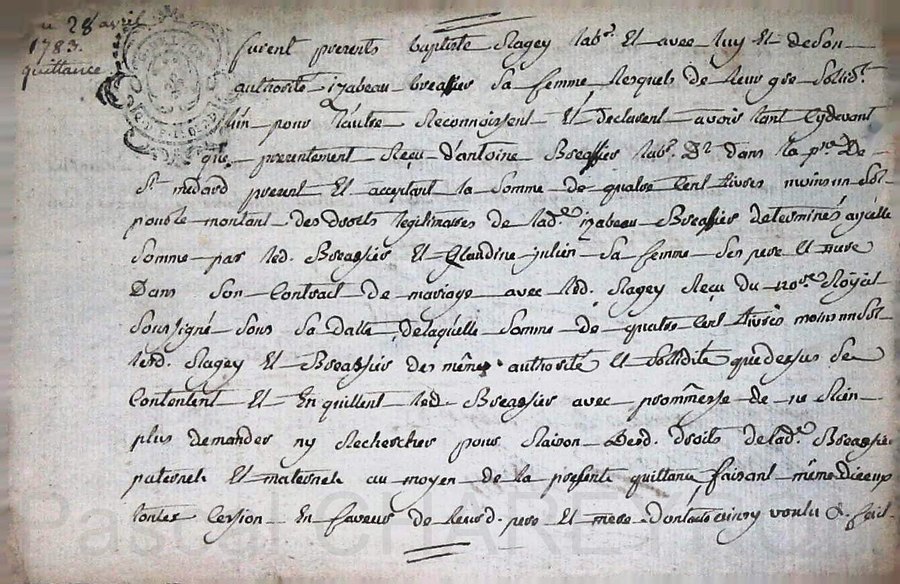 28 avril
1783.
quittance
furent presents baptiste Ragey labr. Et avec luy Et de Son
authorité izabeau breassier Sa femme lesquels de leur gre Sollidt.
l'un pour l'autre Reconnoissent Et declarent avoir tant Cydevant
que presentement Reçu d'antoine Breassier labr. dans la pse De
St. medard present Et acceptant la Somme de quatre Cent livres moins un Sol
pour le montant des droits legitimaires de lade. izabeau Breassier determinés a ycelle
Somme par led. Breassier Et Claudine julien Sa femme Ses pere Et mere
Dans Son Contrat de mariage avec led. Ragey Reçu du nore. Royal
Soussigné Sous Sa datte, delaquelle Somme de quatre Cent livres moins un Sol
lesd. Ragey Et Breassier des même authorité Et Sollidité que dessus Se
Contentent Et En quittent led. Breassier avec prommesse de ne Rien
plus demander ny Rechercher pour Raison desd. droits de lade. Breassier
paternel Et maternel au moyen de la presente quittance faisant même
toutes Cession En faveur de leursd. pere Et mere dont acte ainsy voulu & fait
Pascal CHAREYRON